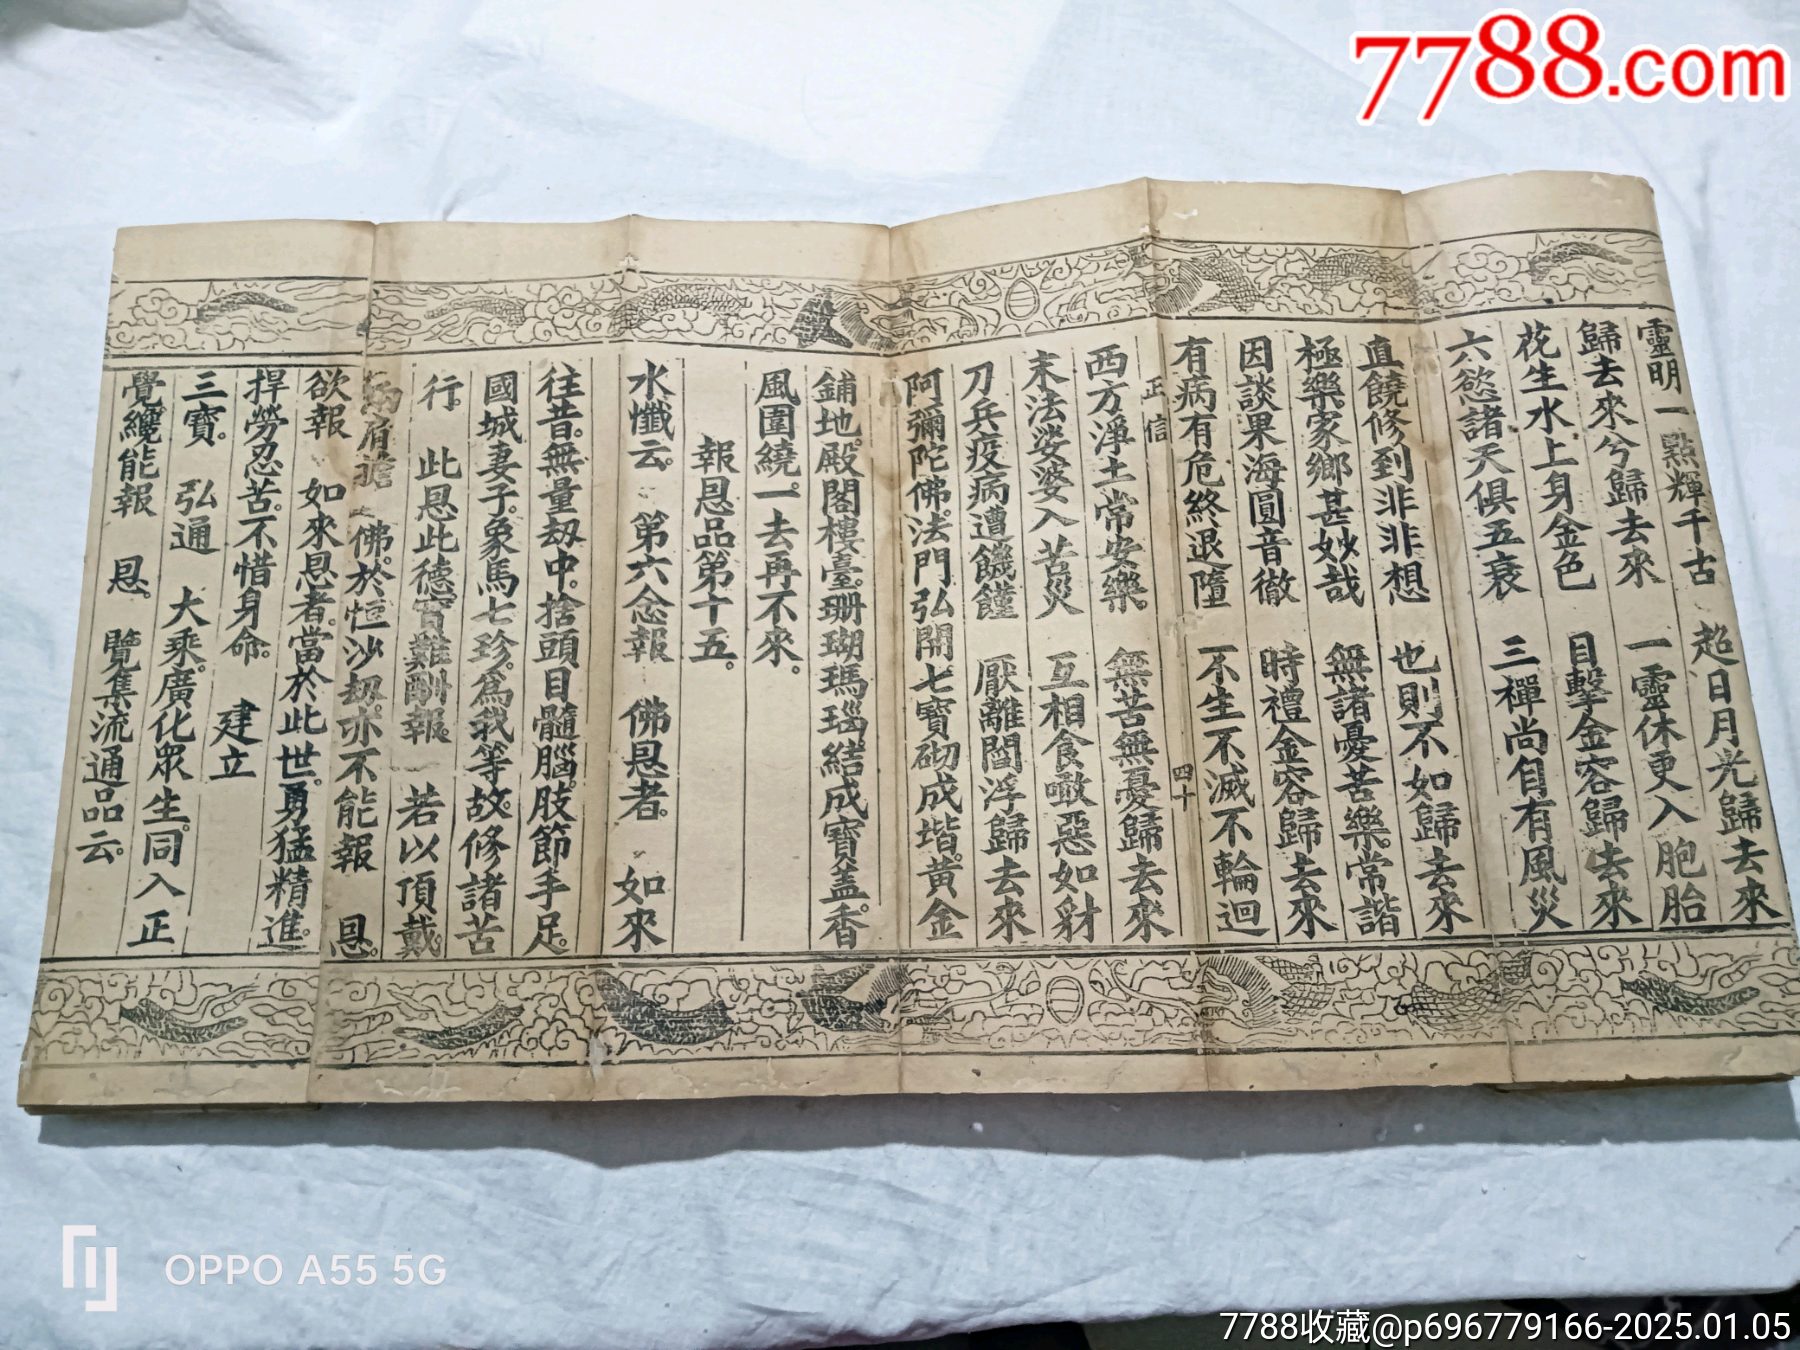 7788.com
靈明一點輝千古 超日月光歸去來
歸去來兮歸去來 一靈休更入胞胎
花生水上身金色 目擊金容歸去來
六慾諸天俱五衰 三禪尚自有風災
直饒修到非非想 也則不如歸去來
極樂家鄉甚妙哉 無諸憂苦樂常諧
因談果海圓音徹 時禮金容歸去來
有病有危終退墮 不生不滅不輪迴
正信 四十
西方淨土常安樂 無苦無憂歸去來
末法娑婆入苦災 互相食噉惡如豺
刀兵疫病遭饑饉 厭離閻浮歸去來
阿彌陀佛法門弘開七寶砌成堦黃金
鋪地殿閣樓臺珊瑚瑪瑙結成寶盖香
風圍繞一去再不來
報恩品第十五
水懺云 第六念報 佛恩者 如來
往昔無量劫中捨頭目髓腦肢節手足
國城妻子象馬七珍爲我等故修諸苦
行 此恩此德實難酬報 若以頂戴
兩肩擔 佛於恒沙劫亦不能報 恩
欲報 如來恩者當於此世勇猛精進
捍勞忍苦不惜身命 建立
三寶 弘通 大乘廣化眾生同入正
覺纔能報 恩 覽集流通品云
OPPO A55 5G
7788收藏@p696779166-2025.01.05